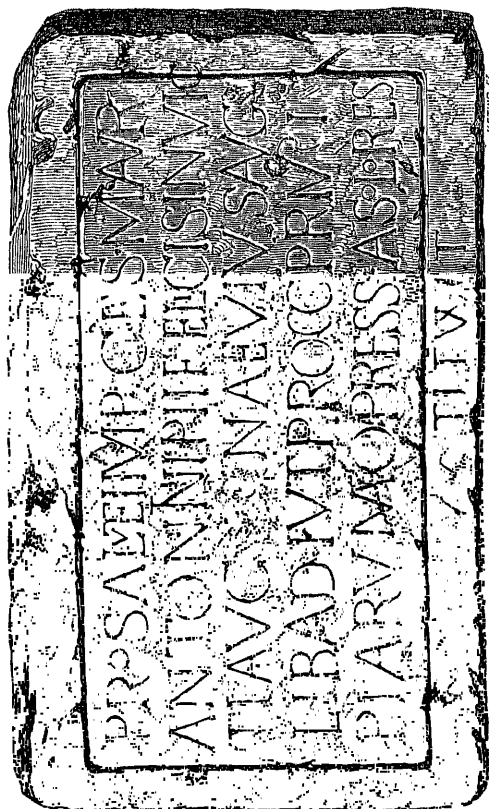 PRO SALVTE IMP CES M AVR
ANTONINI PII FELICIS INVIC
TI AVG NAEVIVS AVG
LIB ADIVT PROCC PRINCI
PIA RVINA OPRESS A SOLO RES
TITVIT